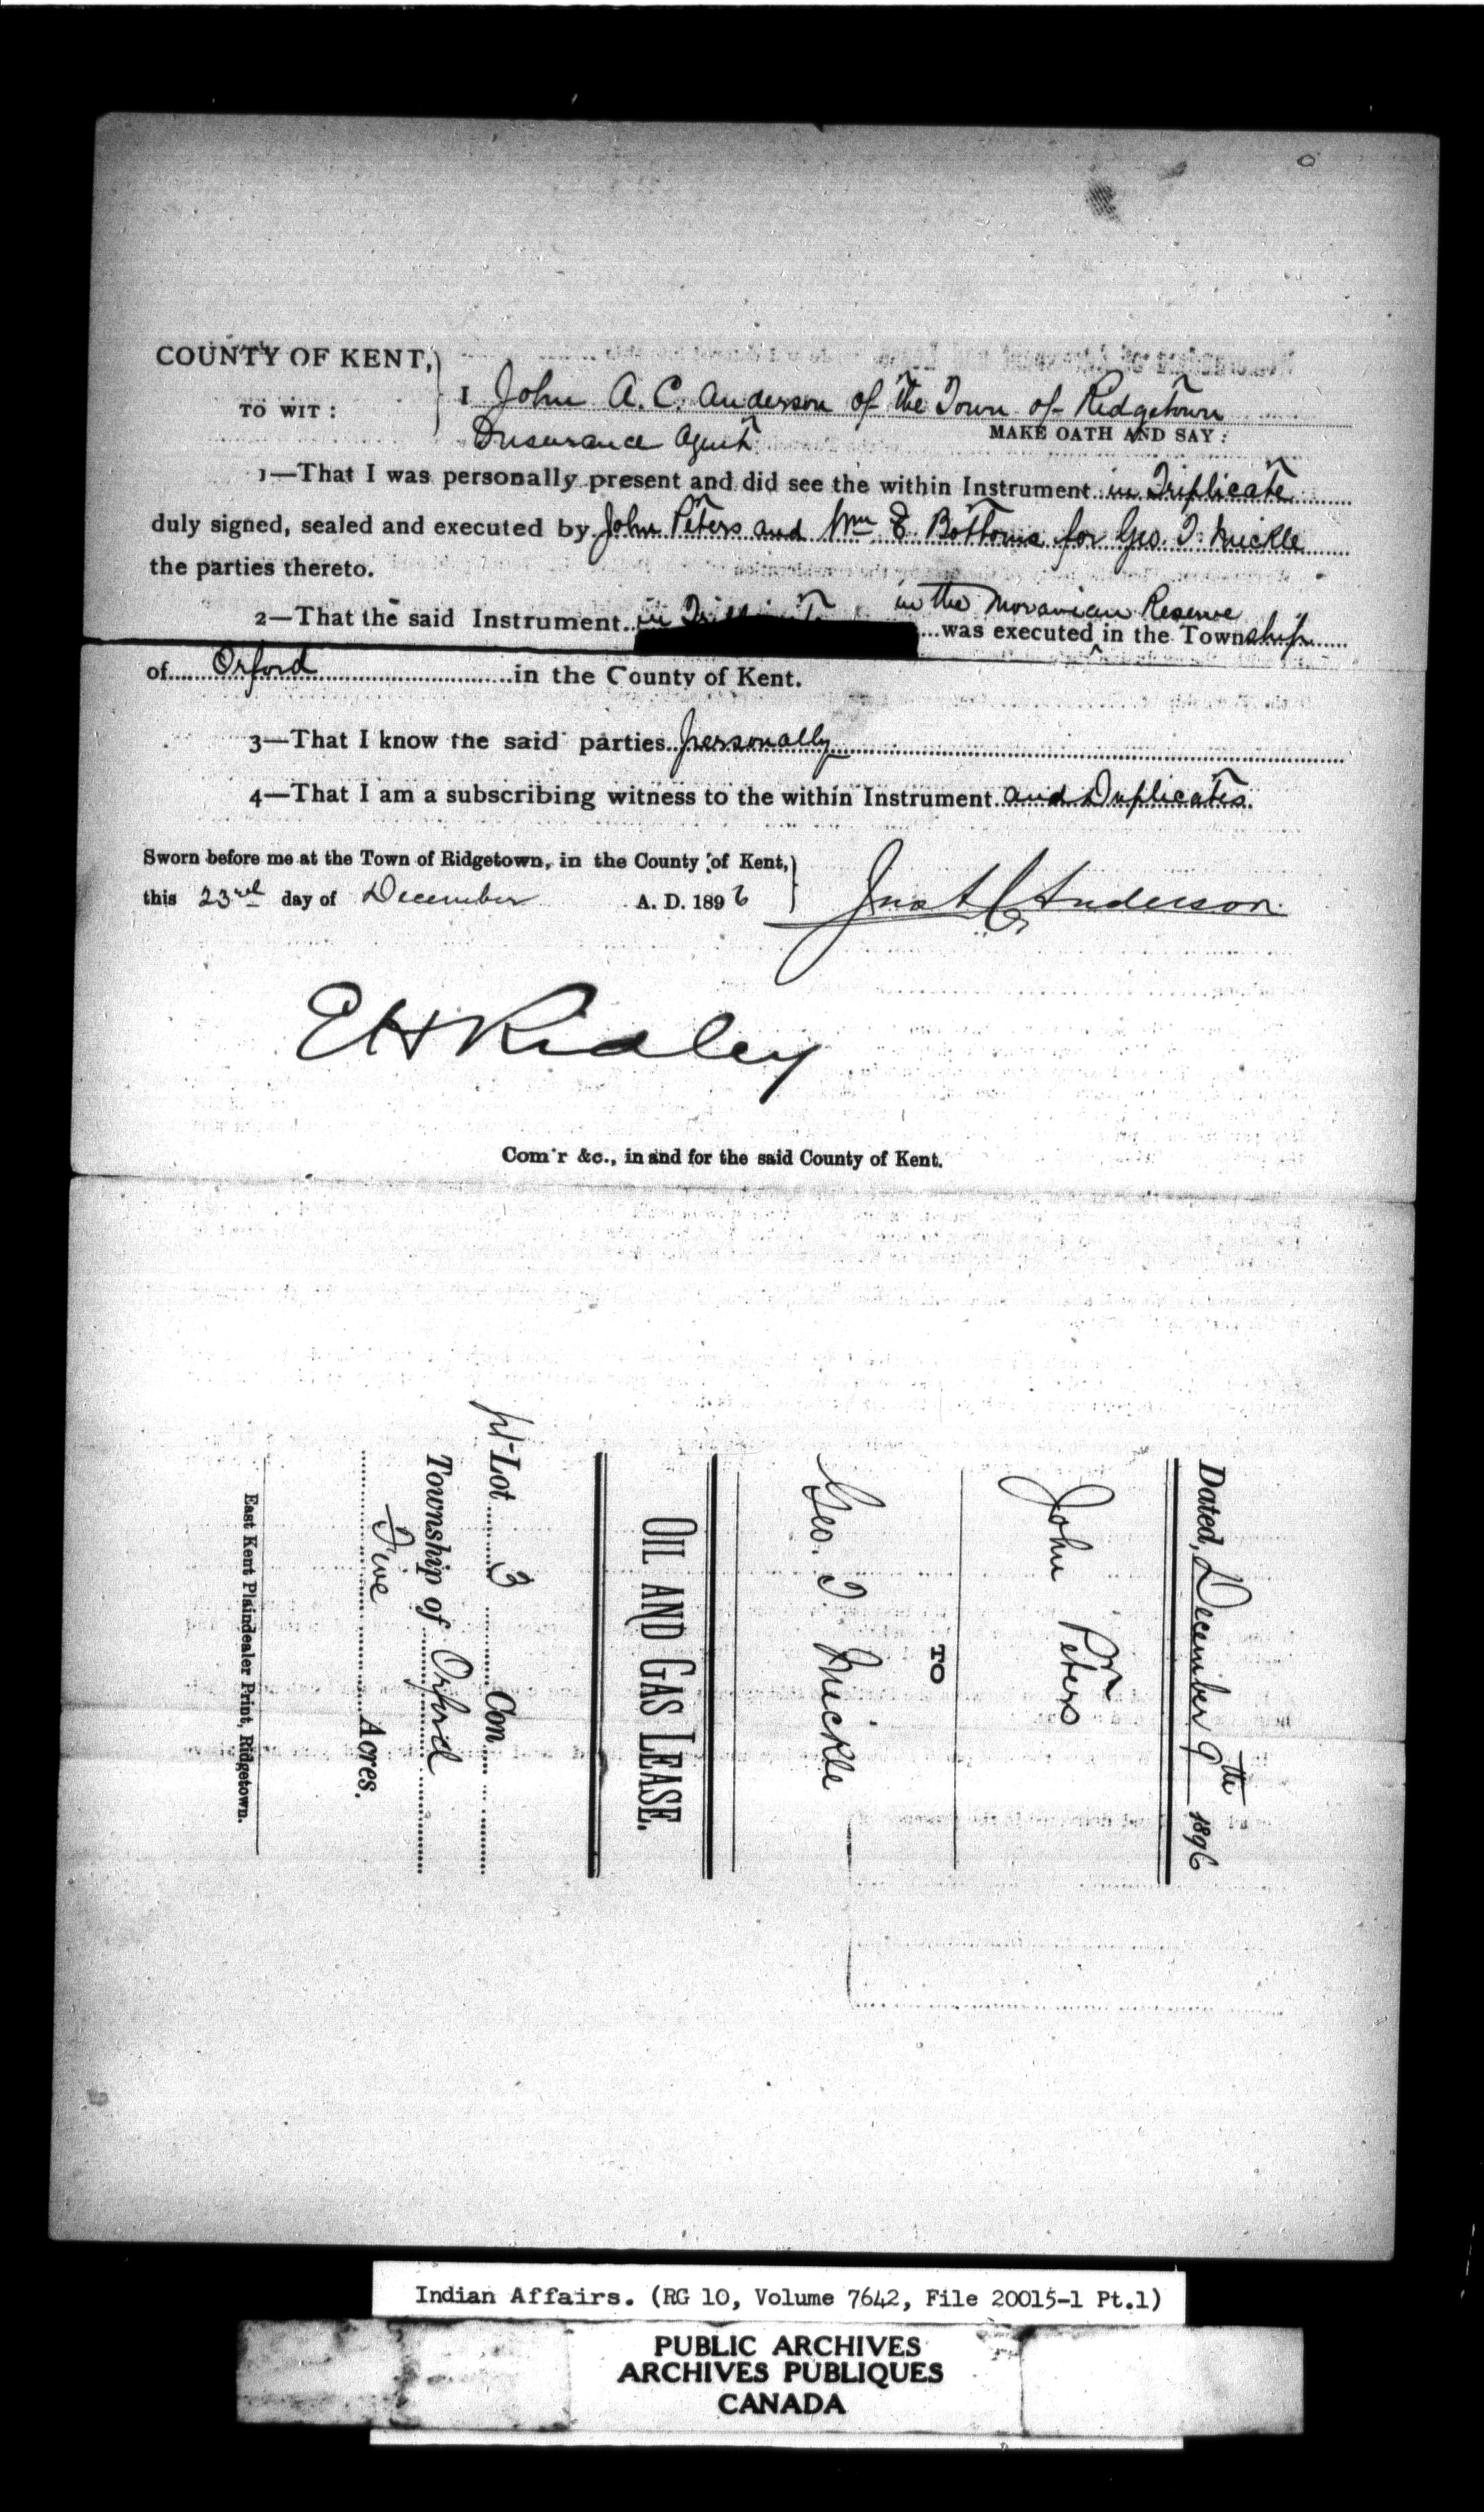 COUNTY OF KENT,
TO WIT :
I John A. C. Anderson of the Town of Ridgetown
Insurance Agent MAKE OATH AND SAY :
1—That I was personally present and did see the within Instrument in Triplicate
duly signed, sealed and executed by John Peters and Wm E. Bottoms for Geo. T. Mickle
the parties thereto.
in the Moravian Reserve
2—That the said Instrument in Triplicate was executed in the Township
of Orford in the County of Kent.
3—That I know the said parties personally
4—That I am a subscribing witness to the within Instrument and Duplicates.
Sworn before me at the Town of Ridgetown, in the County of Kent,
this 23rd day of December A. D. 1896
Jno A C Anderson
E H Ridley
Com'r &c., in and for the said County of Kent.
Dated, December 9th 1896
John Peters
TO
Geo. T. Mickle
OIL AND GAS LEASE.
pt Lot 3 Con
Township of Orford
Five Acres.
East Kent Plaindealer Print, Ridgetown.
Indian Affairs. (RG 10, Volume 7642, File 20015-1 Pt.1)
PUBLIC ARCHIVES
ARCHIVES PUBLIQUES
CANADA